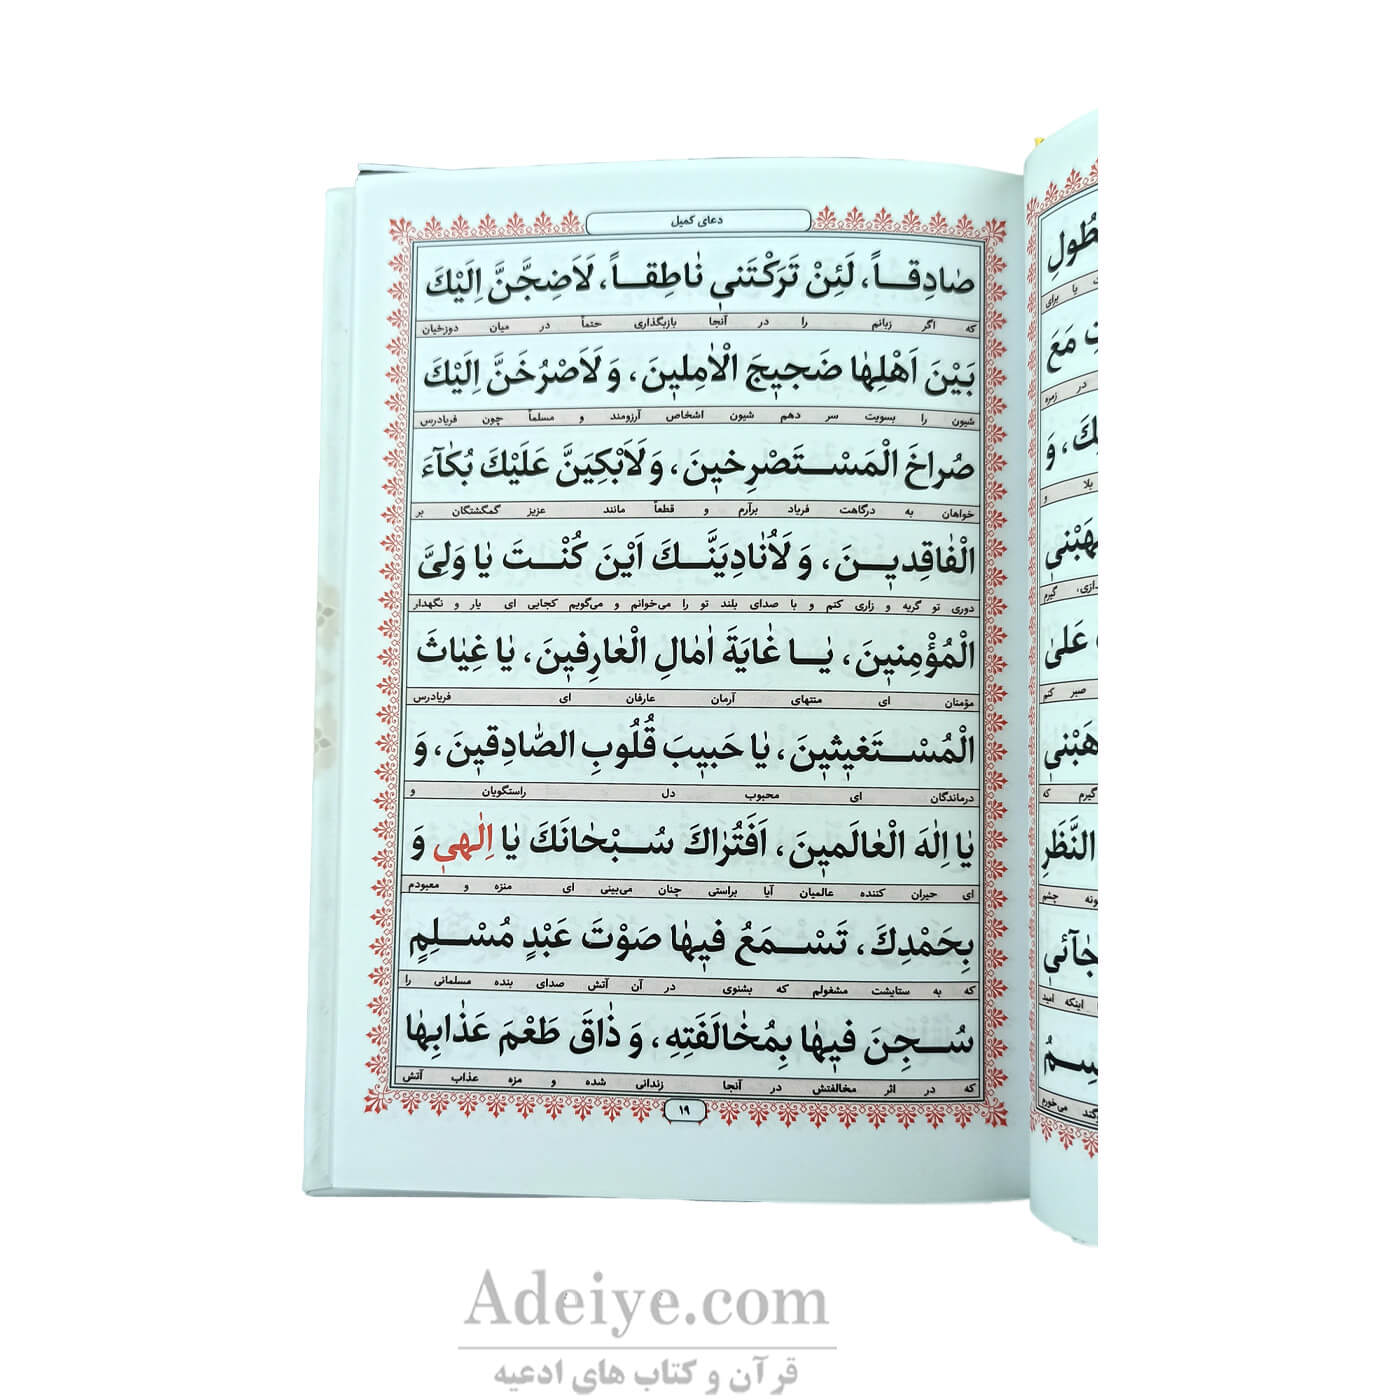 دعای کمیل
صٰادِقـــاً، لَئِنْ تَرَكْتَنى نٰاطِقـــاً، لَاَضِجَّنَّ اِلَيْكَ
که اگر زبانم را در آنجا بازبگذاری حتماً در میان دوزخیان
بَيْنَ اَهْلِهٰا ضَجيجَ الْاٰمِلينَ، وَ لَاَصْرُخَنَّ اِلَيْكَ
شیون را بسویت سر دهم شیون اشخاص آرزومند و مسلماً چون فریادرس
صُراخَ الْمَسْـــتَصْرِخينَ، وَ لَاَبْكِيَنَّ عَلَيْكَ بُكٰآءَ
خواهان به درگاهت فریاد برآرم و قطعاً مانند عزیز گمگشتگان بر
الْفٰاقِديـــنَ، وَ لَاُنٰادِيَنَّـــكَ اَيْنَ كُنْـــتَ يٰا وَلِىَّ
دوری تو گریه و زاری کنم و با صدای بلند تو را می‌خوانم و می‌گویم کجایی ای یار و نگهدار
الْمُؤْمِنينَ، يٰـــا غٰايَةَ اٰمٰالِ الْعٰارِفينَ، يٰا غِيٰاثَ
مؤمنان ای منتهای آرمان عارفان ای فریادرس
الْمُسْـــتَغيثينَ، يٰا حَبيبَ قُلُوبِ الصّٰادِقينَ، وَ
درماندگان ای محبوب دل راستگویان و
يٰا اِلٰهَ الْعٰالَمينَ، اَفَتُرٰاكَ سُـــبْحٰانَكَ يٰا اِلٰهى وَ
ای حیران کننده عالمیان آیا براستی چنان می‌بینی ای منزه و معبودم
بِحَمْدِكَ، تَسْـــمَعُ فيهٰا صَوْتَ عَبْدٍ مُسْـــلِمٍ
که به ستایشت مشغولم که بشنوی در آن آتش صدای بنده مسلمانی را
سُـــجِنَ فيهٰا بِمُخٰالَفَتِهِ، وَ ذٰاقَ طَعْمَ عَذٰابِهٰا
که در اثر مخالفتش در آنجا زندانی شده و مزه عذاب آتش
۱۹
Adeiye.com
قرآن و کتاب های ادعیه